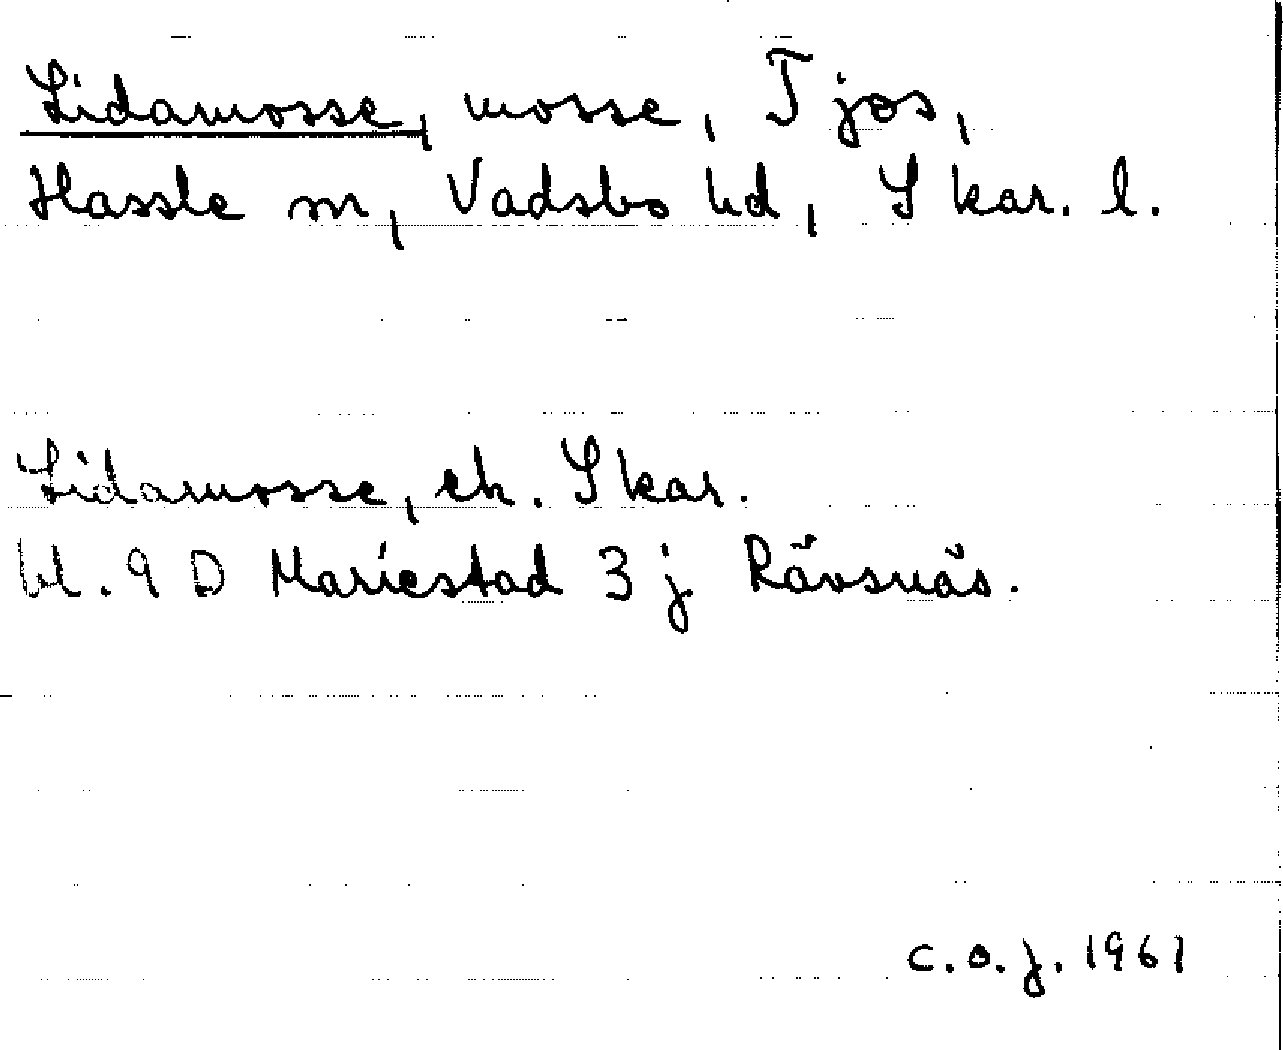 Lidamosse, mosse, Tjos,
Hassle sn, Vadsbo hd, Skar. l.
Lidamosse, ek. Skar.
bl. 9 D Mariestad 3 j Rävsnäs.
C.O.J. 1961